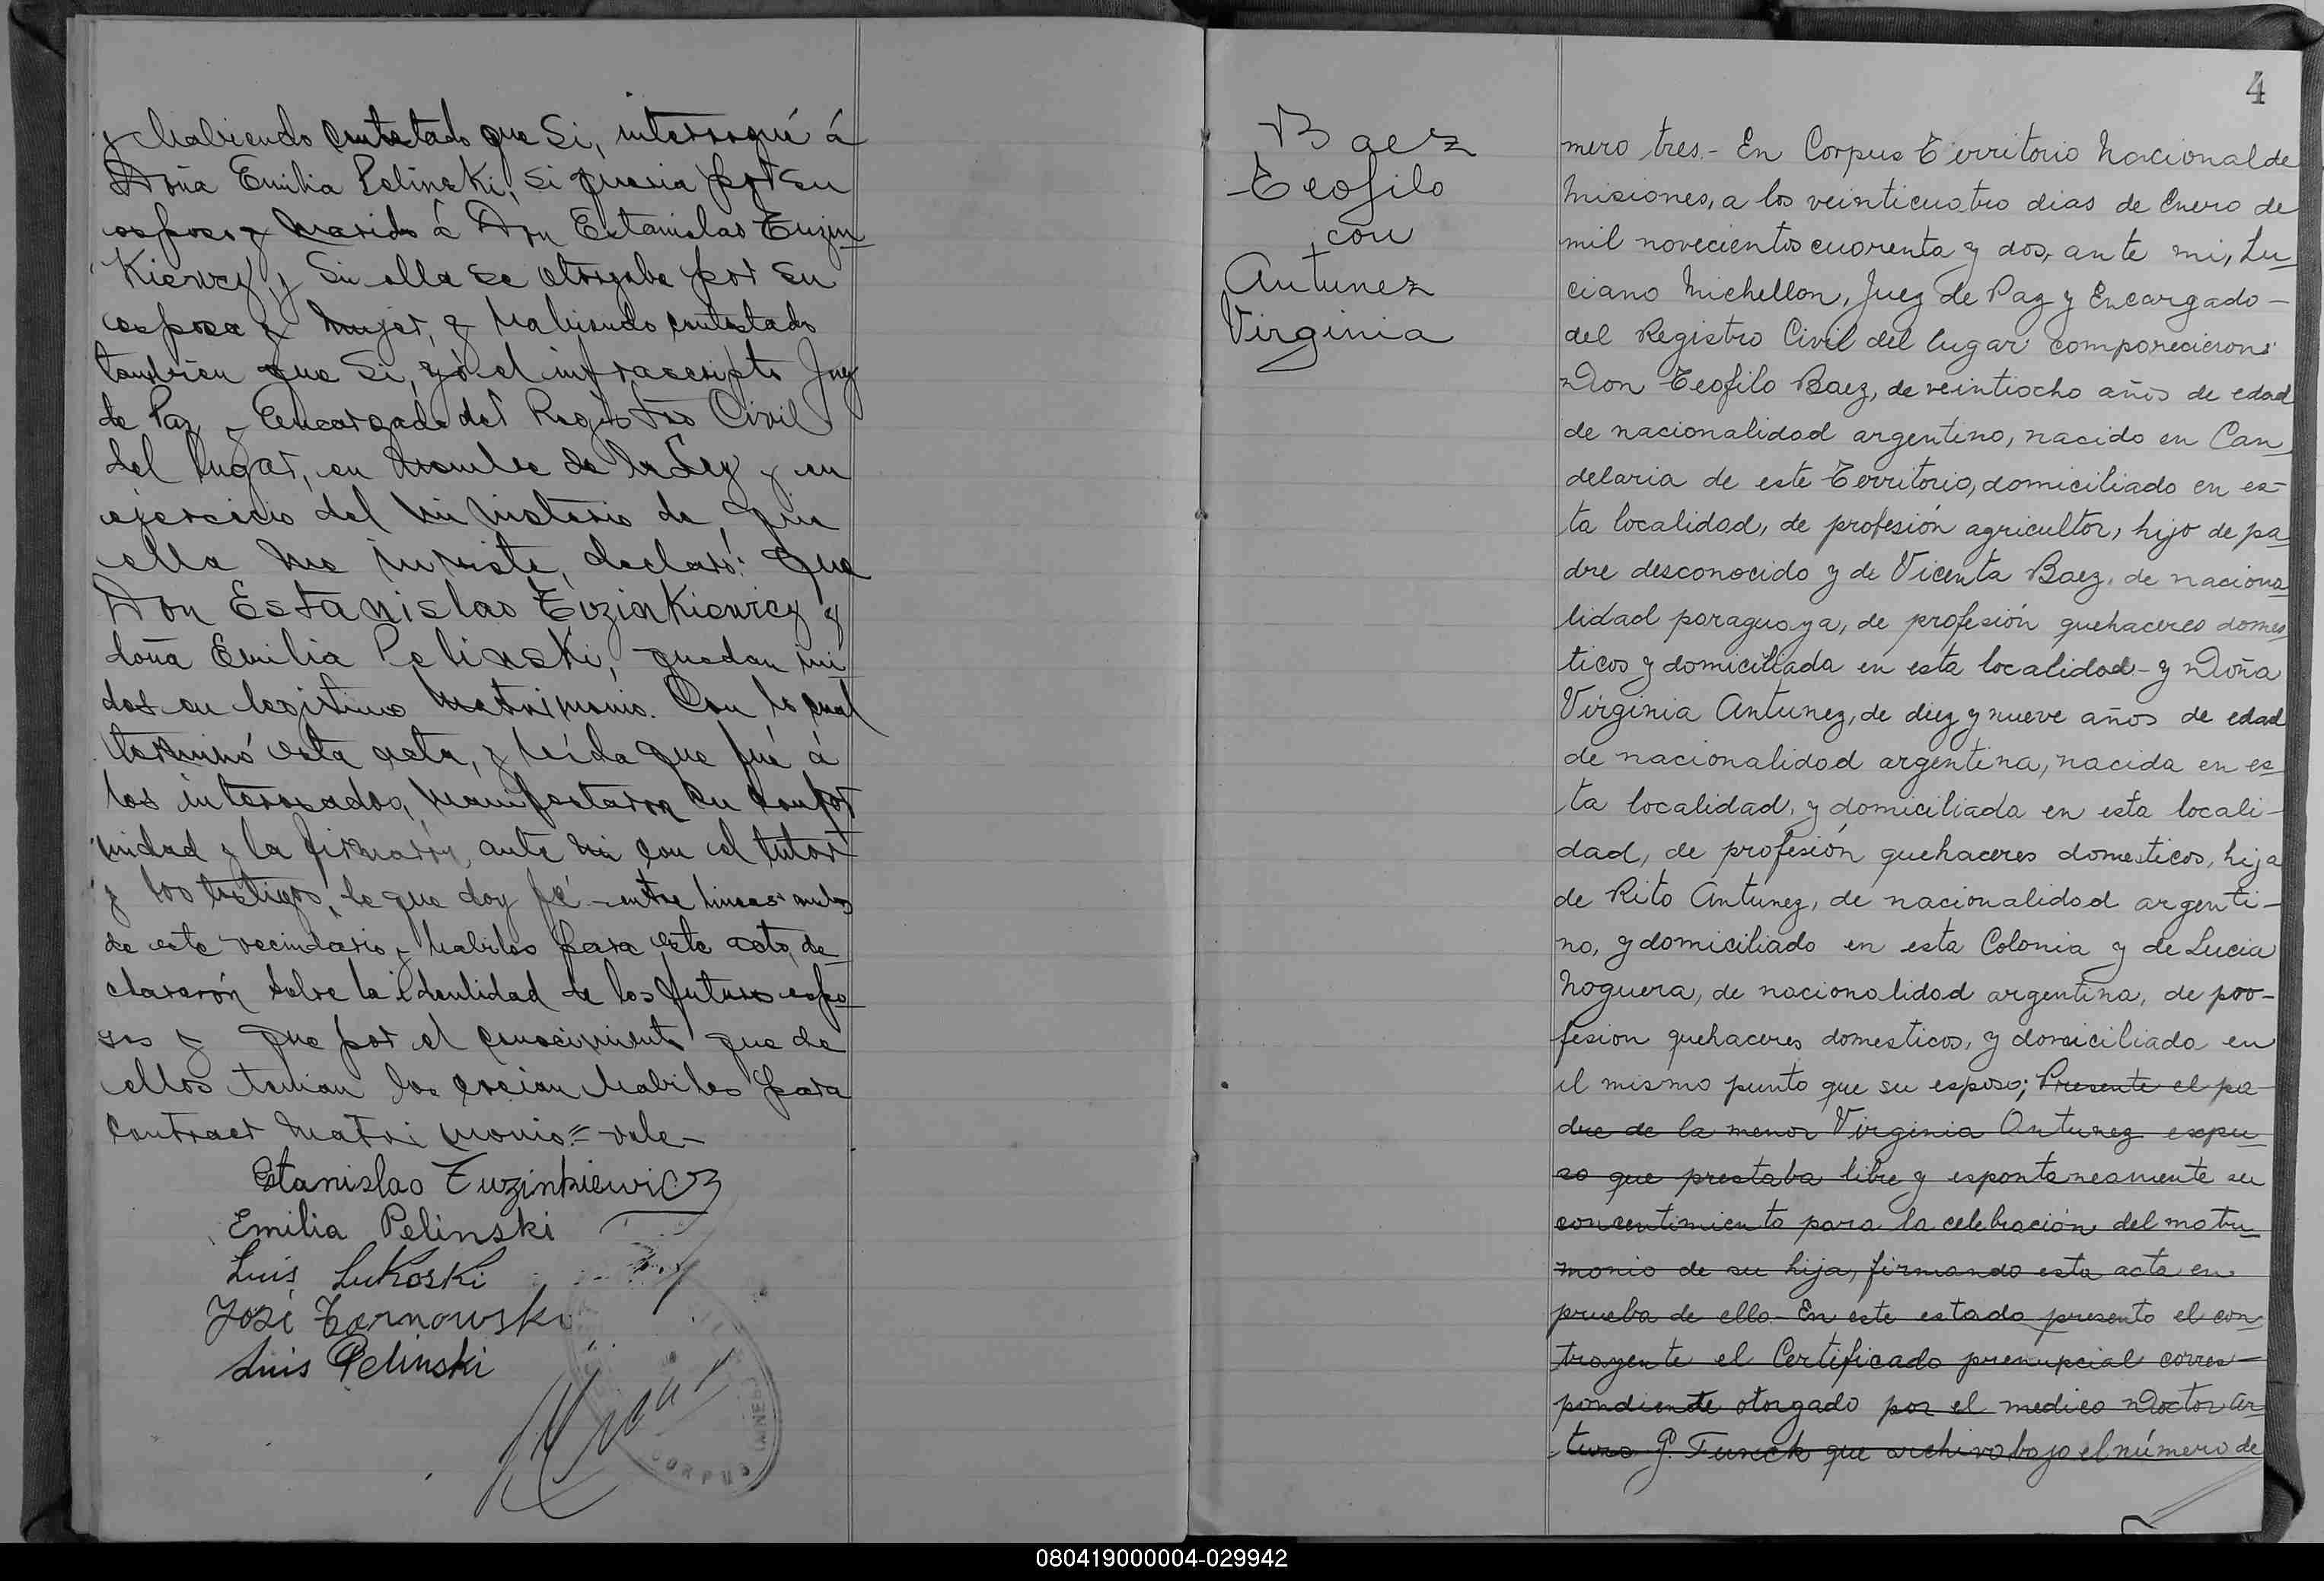 y habiendo contestado que Si, interrogué á
Doña Emilia Pelinski, si queria por su
esposo y marido á Don Estanislao Tuzin
Kiewcz, y Si ella se otorgaba por su
esposa y mujer, y habiendo contestado
tambien que Si, yó el infrascripto Juez
de Paz y Encargado del Registro Civil
del lugar, en nombre de la Ley y en
ejercicio del ministerio de que
ella me inviste, declaró: Que
Don Estanislao Tuzinkiewicz y
doña Emilia Pelinski, quedan uni
dos en legitimo Matrimonio. Con lo cual
terminó esta acta, y leida que fué á
los interesados, manifestaron su confor
midad y la firmarón, ante mi con el tutor
y los testigos, de que doy fé - entre lineas: ambos
de este vecindario y habiles para este acto, de
clararón sobre la identidad de los futuros espo
sos y que por el conocimiento que de
ellos tenian los creian habiles para
contraer matrimonio = vale -
Estanislao Tuzinkiewicz
Emilia Pelinski
Luis Lukoski
José Tarnowski
Luis Pelinski
CORPUS
4
Baez
Teofilo
con
Antunez
Virginia
mero tres.- En Corpus Territorio Nacional de
Misiones, a los veinticuatro dias de Enero de
mil novecientos cuarenta y dos, ante mi, Lu
ciano Michellon, Juez de Paz y Encargado -
del Registro Civil del lugar comparecieron:
Don Teofilo Baez, de veintiocho años de edad
de nacionalidad argentino, nacido en Can
delaria de este Territorio, domiciliado en es-
ta localidad, de profesión agricultor, hijo de pa
dre desconocido y de Vicenta Baez, de naciona
lidad paraguaya, de profesión quehaceres domes
ticos y domiciliada en esta localidad - y Doña
Virginia Antunez, de diez y nueve años de edad
de nacionalidad argentina, nacida en es
ta localidad, y domiciliada en esta locali-
dad, de profesión quehaceres domesticos, hija
de Rito Antunez, de nacionalidad argenti-
no, y domiciliado en esta Colonia y de Lucia
Noguera, de nacionalidad argentina, de pro-
fesion quehaceres domesticos, y domiciliada en
el mismo punto que su esposo; Presente el pa
dre de la menor Virginia Antunez expu
so que prestaba libre y espontaneamente su
consentimiento para la celebración del matri
monio de su hija, firmando esta acta en
prueba de ello.- En este estado presento el con
trayente el Certificado prenupcial corres-
pondiente otorgado por el medico Doctor Ar
turo P. Funck que archivo bajo el número de
080419000004-029942